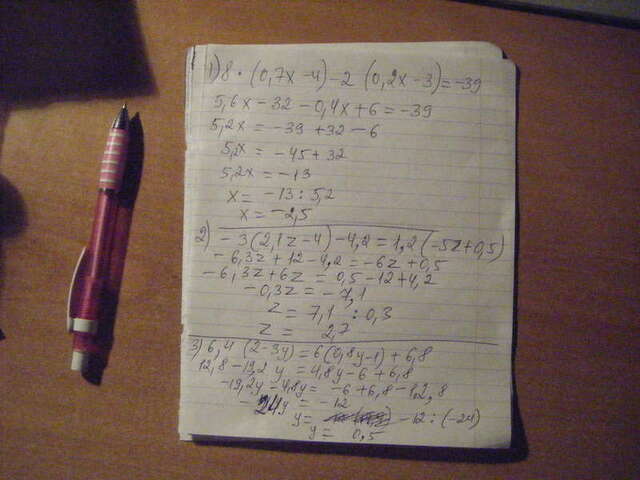 1) 8 · (0,7x - 4) - 2 (0,2x - 3) = -39
5,6x - 32 - 0,4x + 6 = -39
5,2x = -39 + 32 - 6
5,2x = -45 + 32
5,2x = -13
x = -13 : 5,2
x = -2,5
2) -3 (2,1z - 4) - 4,2 = 1,2 (-5z + 0,5)
-6,3z + 12 - 4,2 = -6z + 0,5
-6,3z + 6z = 0,5 - 12 + 4,2
-0,3z = -7,1
z = 7,1 : 0,3
z = 2,7
3) 6,4 (2 - 3y) = 6 (0,8y - 1) + 6,8
12,8 - 19,2y = 4,8y - 6 + 6,8
-19,2y - 4,8y = -6 + 6,8 - 12,8
-24y = -12
y = -12 : (-24)
y = 0,5